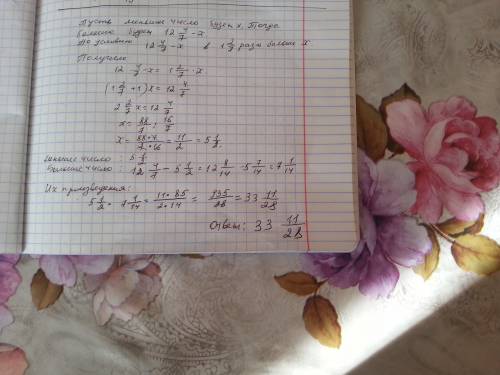 Пусть меньшее число будет x. Тогда
большее будет 12 4/7 - x
По условию 12 4/7 - x в 1 2/7 раза больше x
Получаем
12 4/7 - x = 1 2/7 · x
(1 2/7 + 1) x = 12 4/7
2 2/7 x = 12 4/7
x = 88/7 : 16/7
x = 88·7/7·16 = 11/2 = 5 1/2
меньшее число : 5 1/2
большее число : 12 4/7 - 5 1/2 = 12 8/14 - 5 7/14 = 7 1/14
Их произведение:
5 1/2 · 7 1/14 = 11·85/2·14 = 935/28 = 33 11/28
Ответ: 33 11/28